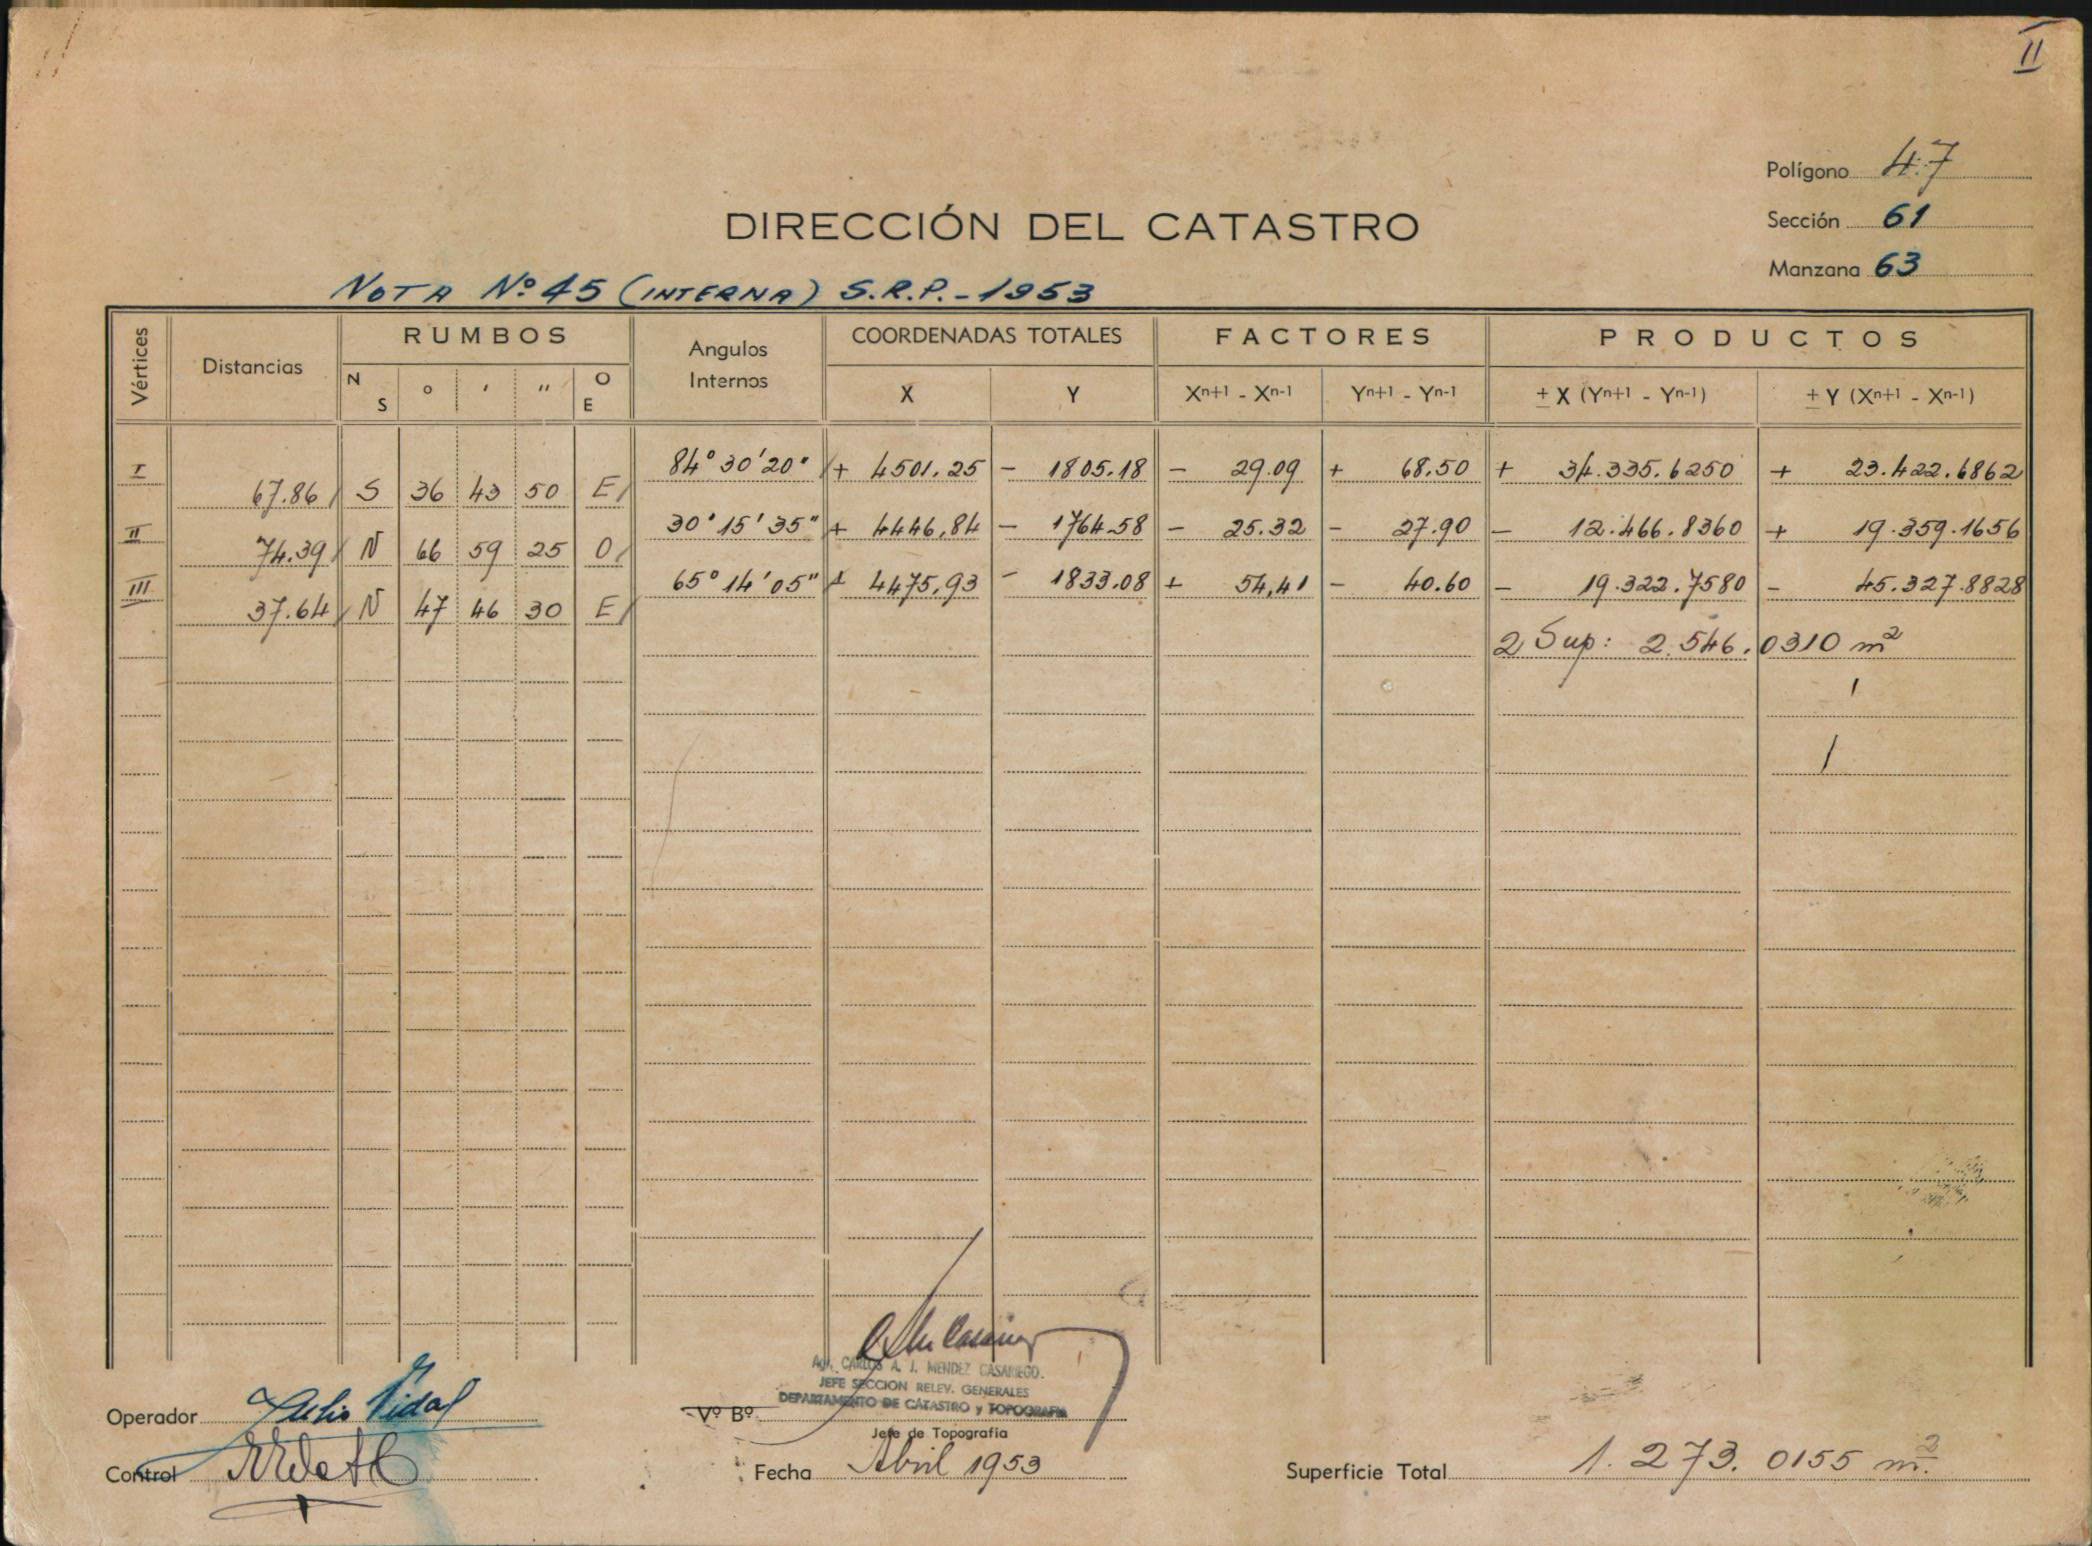 II
Polígono 47
Sección 61
Manzana 63
DIRECCIÓN DEL CATASTRO
NOTA Nº 45 (INTERNA) S.R.P. - 1953
Vértices Distancias RUMBOS Angulos Internos COORDENADAS TOTALES FACTORES PRODUCTOS
N S ° ' " O E X Y Xn+1 - Xn-1 Yn+1 - Yn-1 ± X (Yn+1 - Yn-1) ± Y (Xn+1 - Xn-1)
I 84° 30' 20" + 4501.25 - 1805.18 - 29.09 + 68.50 + 34.335.6250 + 23.422.6862
67.86 S 36 43 50 E
II 30° 15' 35" + 4446,84 - 1764.58 - 25.32 - 27.90 - 12.466.8360 + 19.359.1656
74.39 N 66 59 25 O
III 65° 14' 05" + 4475,93 - 1833.08 + 54,41 - 40.60 - 19.322.7580 - 45.327.8828
37.64 N 47 46 30 E
2 Sup: 2.546.0310 m²
Operador Julio Vidal
Control
Vº Bº
Agr. CARLOS A. J. MENDEZ CASARIEGO.
JEFE SECCION RELEV. GENERALES
DEPARTAMENTO DE CATASTRO y TOPOGRAFIA
Jefe de Topografía
Fecha Abril 1953
Superficie Total 1.273.0155 m².